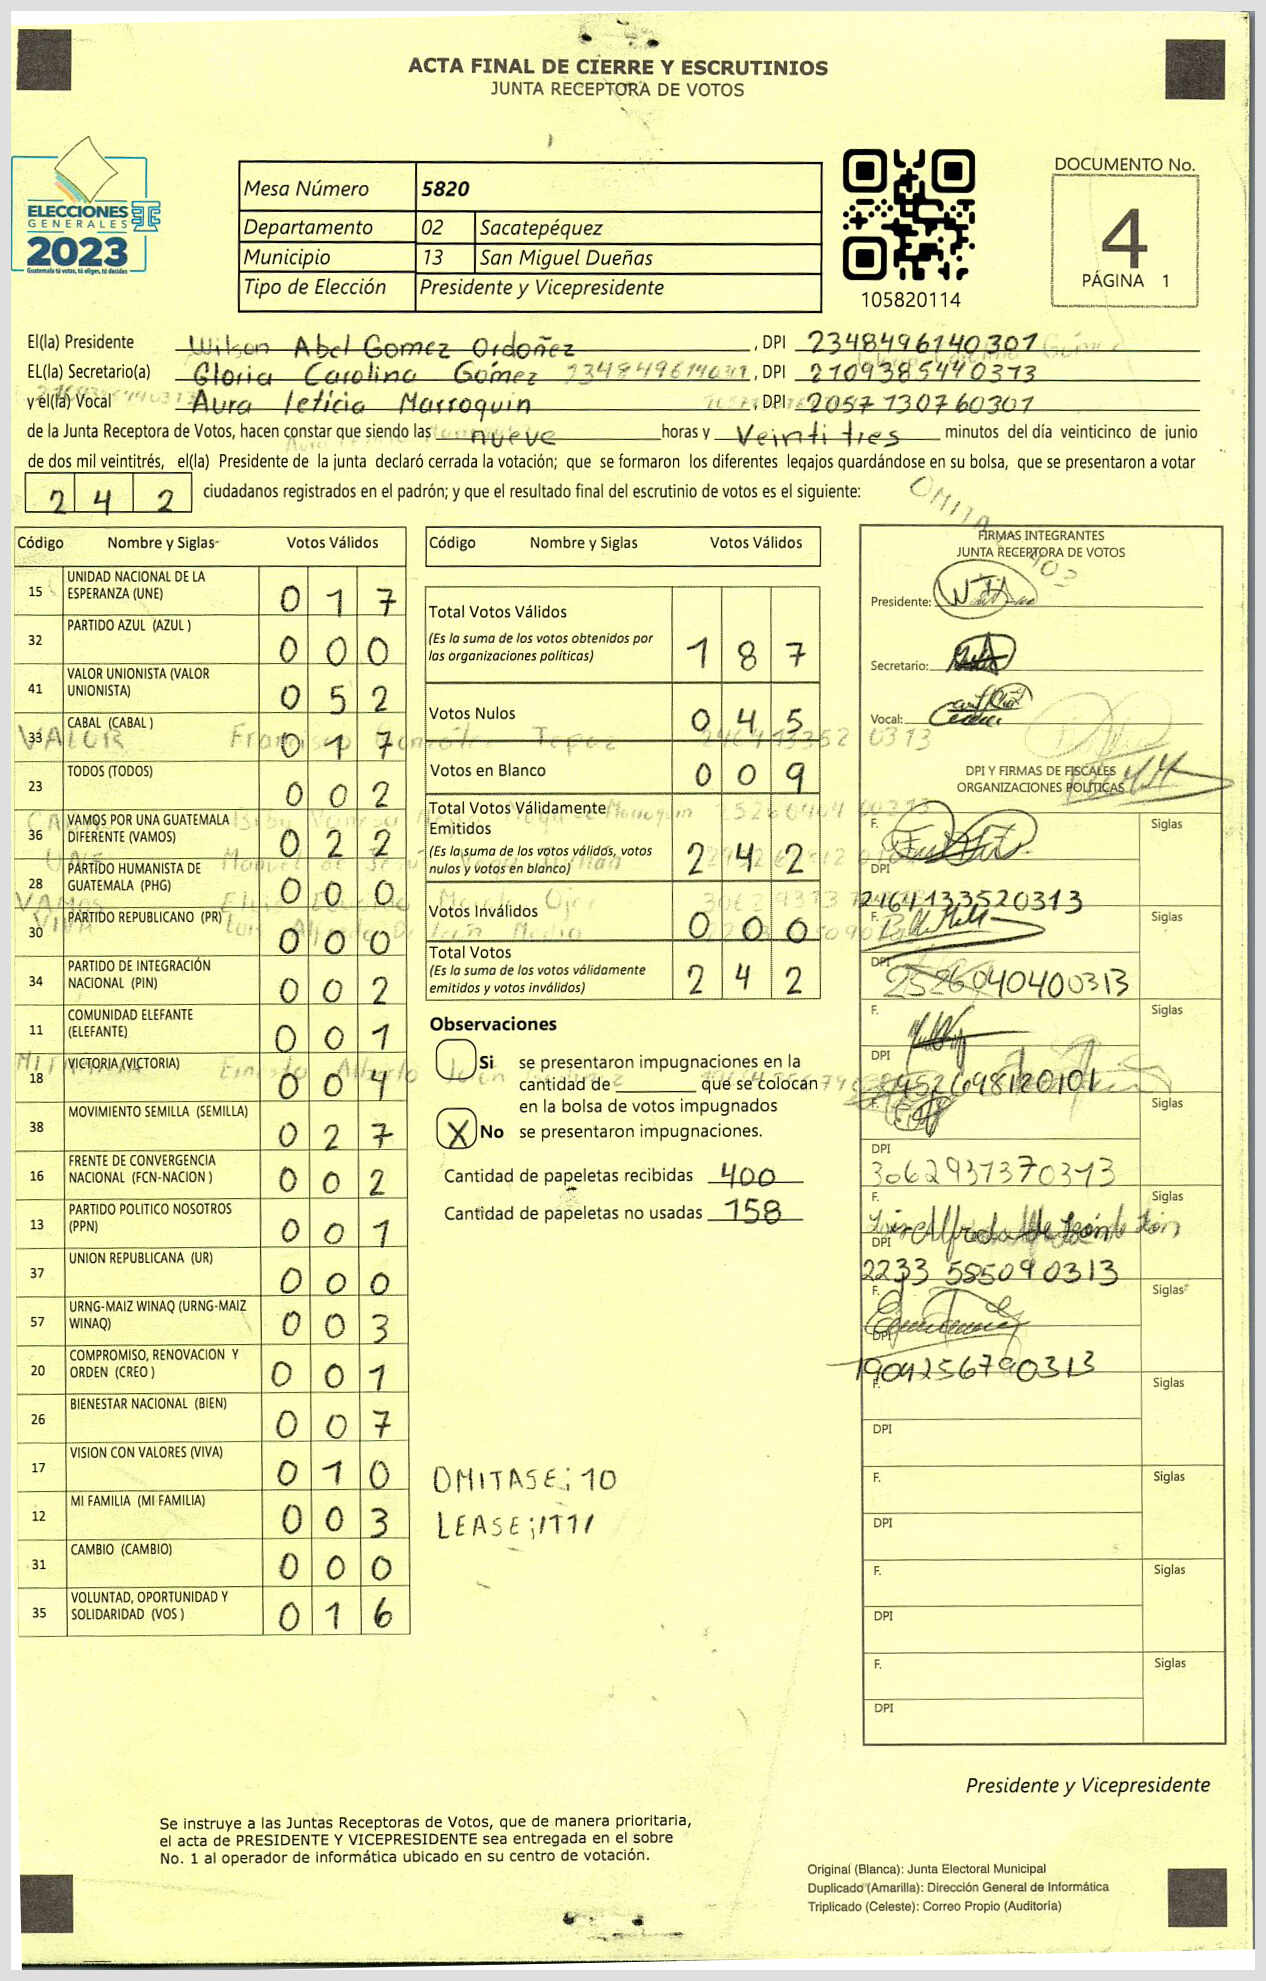 ACTA FINAL DE CIERRE Y ESCRUTINIOS
JUNTA RECEPTORA DE VOTOS
ELECCIONES
GENERALES
2023
Guatemala tú votas, tú eliges, tú decides
Mesa Número 5820
Departamento 02 Sacatepéquez
Municipio 13 San Miguel Dueñas
Tipo de Elección Presidente y Vicepresidente
105820114
DOCUMENTO No.
4
PÁGINA 1
El(la) Presidente Wilson Abel Gomez Ordoñez, DPI 2348496140301
EL(la) Secretario(a) Gloria Carolina Gómez, DPI 2109385440313
y el(la) Vocal Aura leticia Marroquin, DPI 2057130760301
de la Junta Receptora de Votos, hacen constar que siendo las nueve horas y Veintitres minutos del día veinticinco de junio
de dos mil veintitrés, el(la) Presidente de la junta declaró cerrada la votación; que se formaron los diferentes legajos guardándose en su bolsa, que se presentaron a votar
242 ciudadanos registrados en el padrón; y que el resultado final del escrutinio de votos es el siguiente:
Código Nombre y Siglas Votos Válidos
15 UNIDAD NACIONAL DE LA ESPERANZA (UNE) 017
32 PARTIDO AZUL (AZUL ) 000
41 VALOR UNIONISTA (VALOR UNIONISTA) 052
33 CABAL (CABAL ) 017
23 TODOS (TODOS) 002
36 VAMOS POR UNA GUATEMALA DIFERENTE (VAMOS) 022
28 PARTIDO HUMANISTA DE GUATEMALA (PHG) 000
30 PARTIDO REPUBLICANO (PR) 000
34 PARTIDO DE INTEGRACIÓN NACIONAL (PIN) 002
11 COMUNIDAD ELEFANTE (ELEFANTE) 001
18 VICTORIA (VICTORIA) 004
38 MOVIMIENTO SEMILLA (SEMILLA) 027
16 FRENTE DE CONVERGENCIA NACIONAL (FCN-NACION ) 002
13 PARTIDO POLITICO NOSOTROS (PPN) 001
37 UNION REPUBLICANA (UR) 000
57 URNG-MAIZ WINAQ (URNG-MAIZ WINAQ) 003
20 COMPROMISO, RENOVACION Y ORDEN (CREO ) 001
26 BIENESTAR NACIONAL (BIEN) 007
17 VISION CON VALORES (VIVA) 010
12 MI FAMILIA (MI FAMILIA) 003
31 CAMBIO (CAMBIO) 000
35 VOLUNTAD, OPORTUNIDAD Y SOLIDARIDAD (VOS ) 016
Código Nombre y Siglas Votos Válidos
Total Votos Válidos 187
(Es la suma de los votos obtenidos por
las organizaciones políticas)
Votos Nulos 045
Votos en Blanco 009
Total Votos Válidamente
Emitidos 242
(Es la suma de los votos válidos, votos
nulos y votos en blanco)
Votos Inválidos 000
Total Votos 242
(Es la suma de los votos válidamente
emitidos y votos inválidos)
Observaciones
Si se presentaron impugnaciones en la
cantidad de que se colocan
en la bolsa de votos impugnados
X No se presentaron impugnaciones.
Cantidad de papeletas recibidas 400
Cantidad de papeletas no usadas 158
OMITASE; 10
LEASE;
FIRMAS INTEGRANTES
JUNTA RECEPTORA DE VOTOS
Presidente:
Secretario:
Vocal:
DPI Y FIRMAS DE FISCALES
ORGANIZACIONES POLÍTICAS
F. Siglas
DPI
2464133520313
F. Siglas
DPI
2526040400313
F. Siglas
DPI
2952698120101
F. Siglas
DPI
3062931370313
F. Siglas
DPI
2233 585090313
F. Siglas
DPI
1904256790313
F. Siglas
DPI
F. Siglas
DPI
F. Siglas
DPI
F. Siglas
DPI
Presidente y Vicepresidente
Se instruye a las Juntas Receptoras de Votos, que de manera prioritaria,
el acta de PRESIDENTE Y VICEPRESIDENTE sea entregada en el sobre
No. 1 al operador de informática ubicado en su centro de votación.
Original (Blanca): Junta Electoral Municipal
Duplicado (Amarilla): Dirección General de Informática
Triplicado (Celeste): Correo Propio (Auditoría)